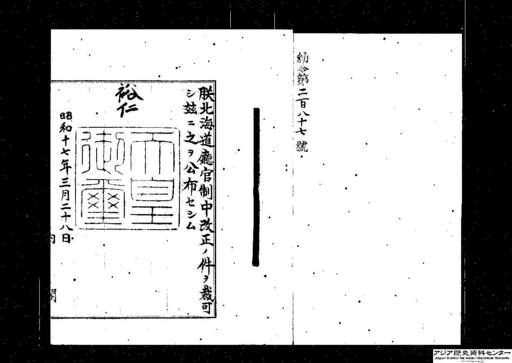 勅令第二百八十七號
朕北海道廳官制中改正ノ件ヲ裁可
シ玆ニ之ヲ公布セシム
裕仁
天皇
御璽
昭和十七年三月二十八日
内閣
アジア歴史資料センター
Japan Center for Asian Historical Records